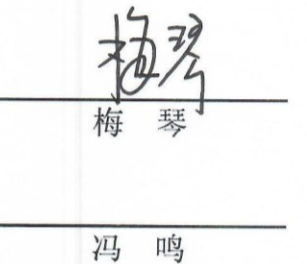 梅琴
梅 琴
冯 鸣